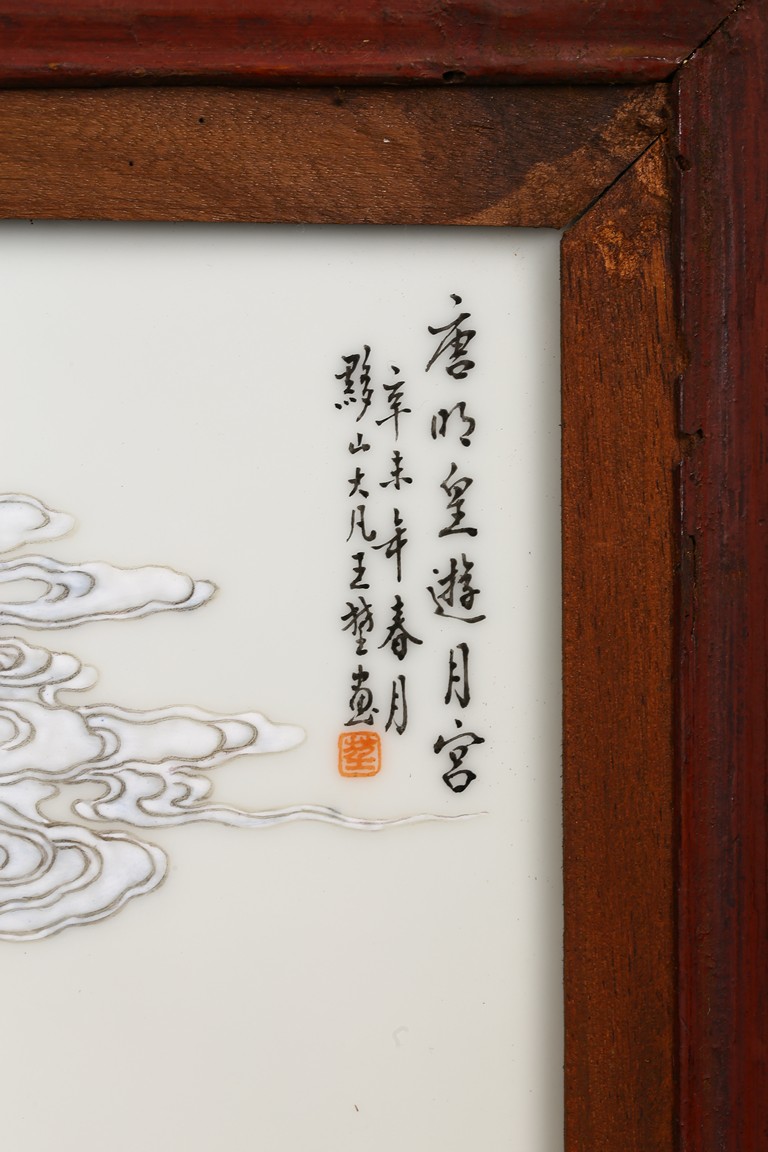 唐明皇遊月宮
辛未年春月
黟山大凡王堃畫